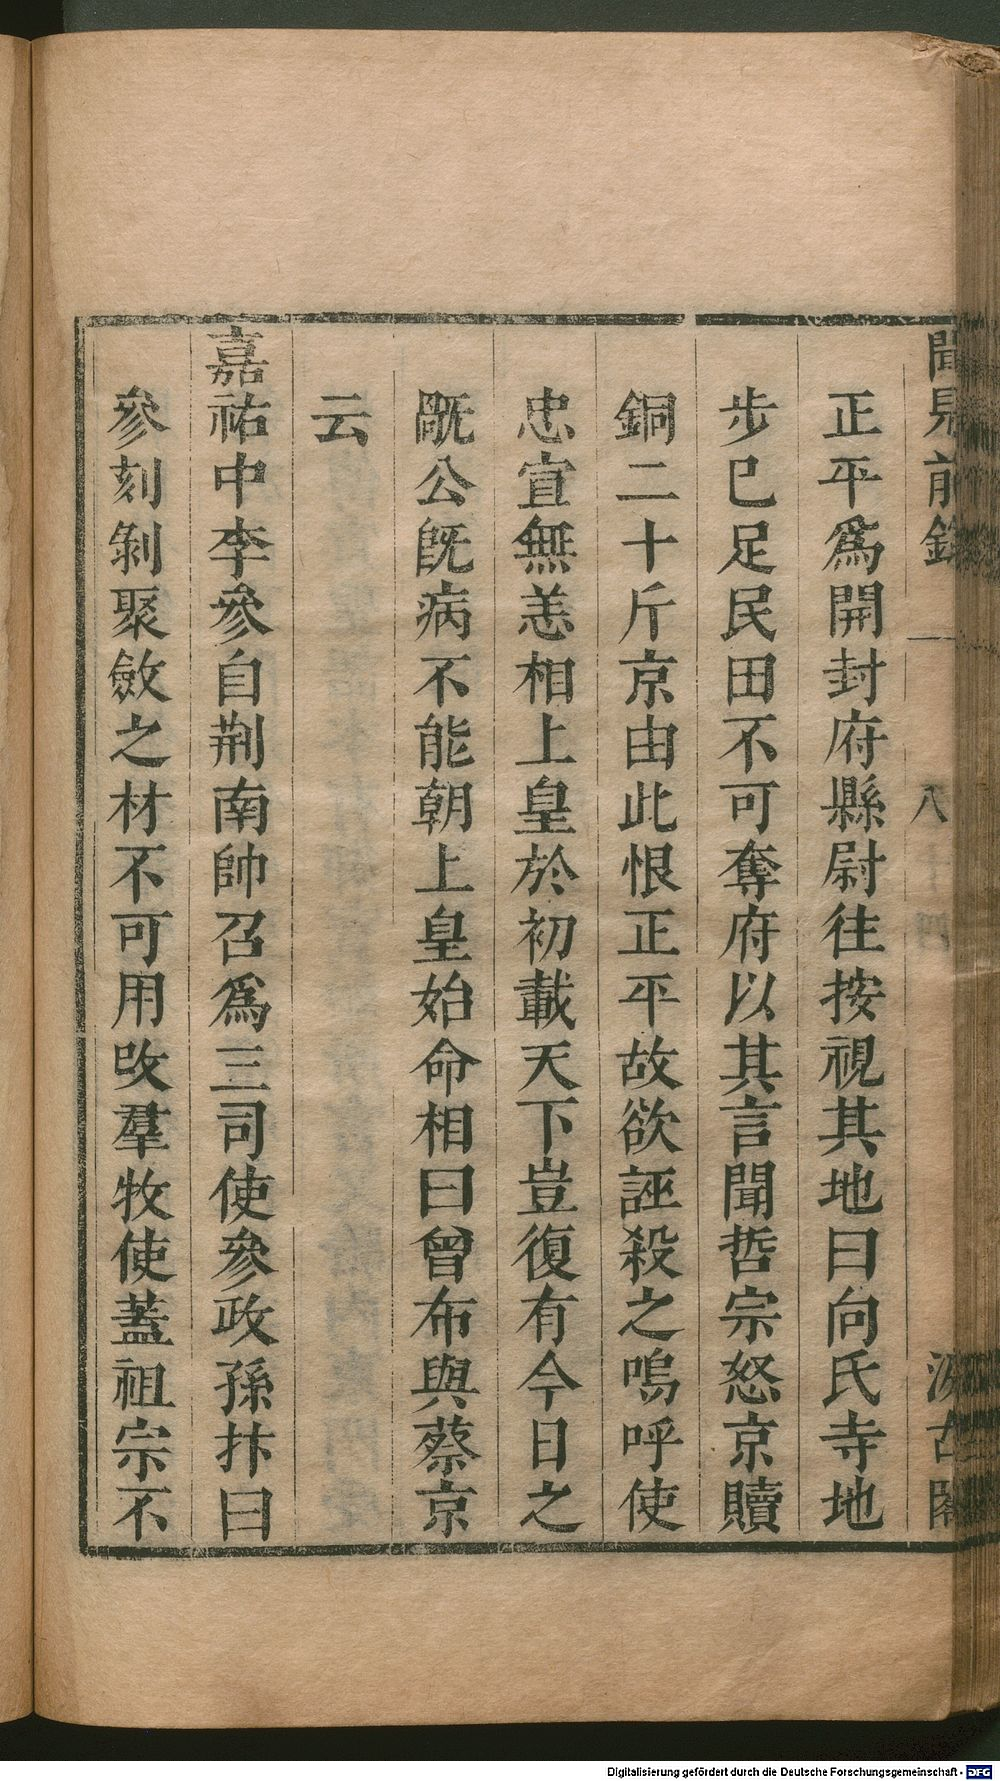 聞見前錄 八 汲古閣
正平爲開封府縣尉往按視其地曰向氏寺地
步已足民田不可奪府以其言聞哲宗怒京贖
銅二十斤京由此恨正平故欲誣殺之嗚呼使
忠宣無恙相上皇於初載天下豈復有今日之
旤公旣病不能朝上皇始命相曰曾布與蔡京
云
嘉祐中李參自荆南帥召爲三司使參政孫抃曰
參刻剝聚斂之材不可用改羣牧使蓋祖宗不
Digitalisierung gefördert durch die Deutsche Forschungsgemeinschaft - DFG